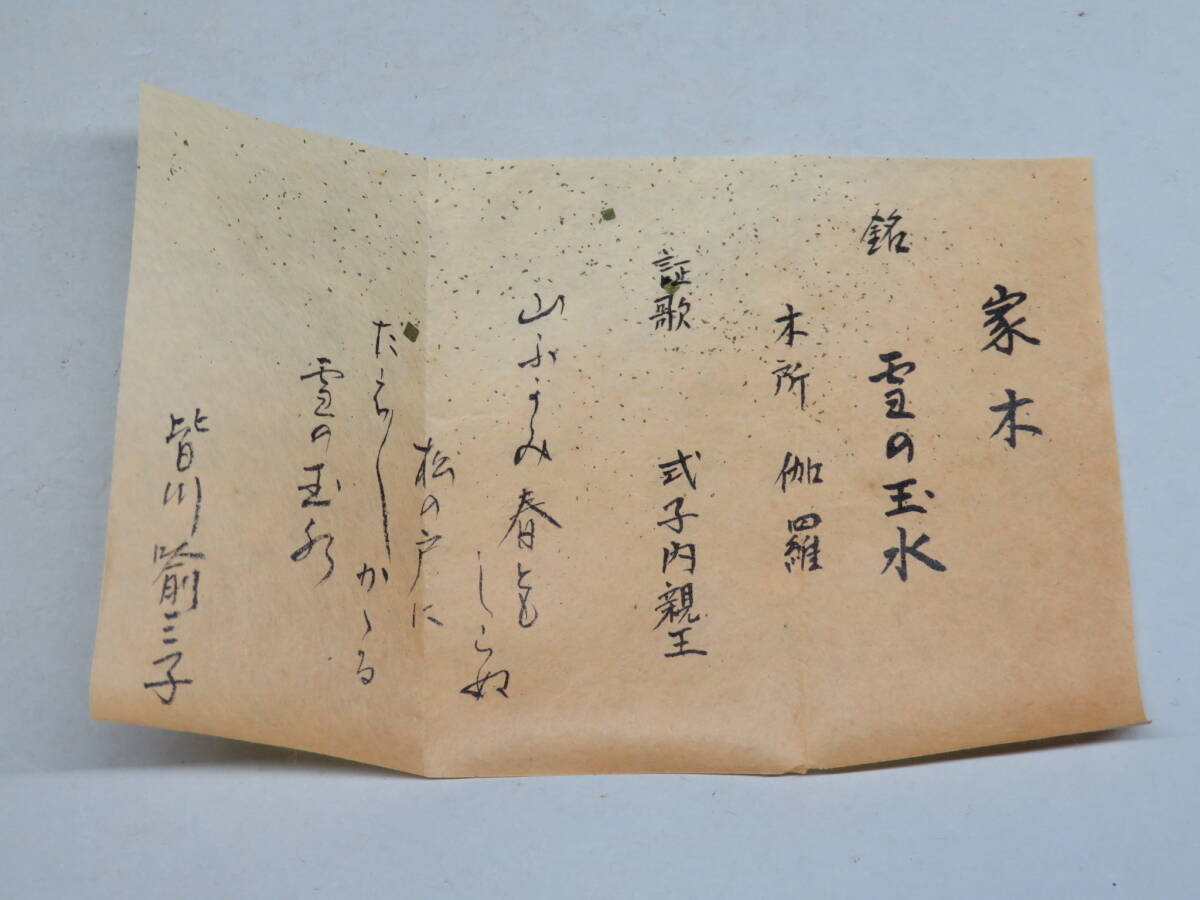 家木
銘 雪の玉水
木所 伽羅
証歌 式子内親王
山ふかみ春とも
しらぬ
松の戸に
たえ〳〵かゝる
雪の玉水
皆川 三子